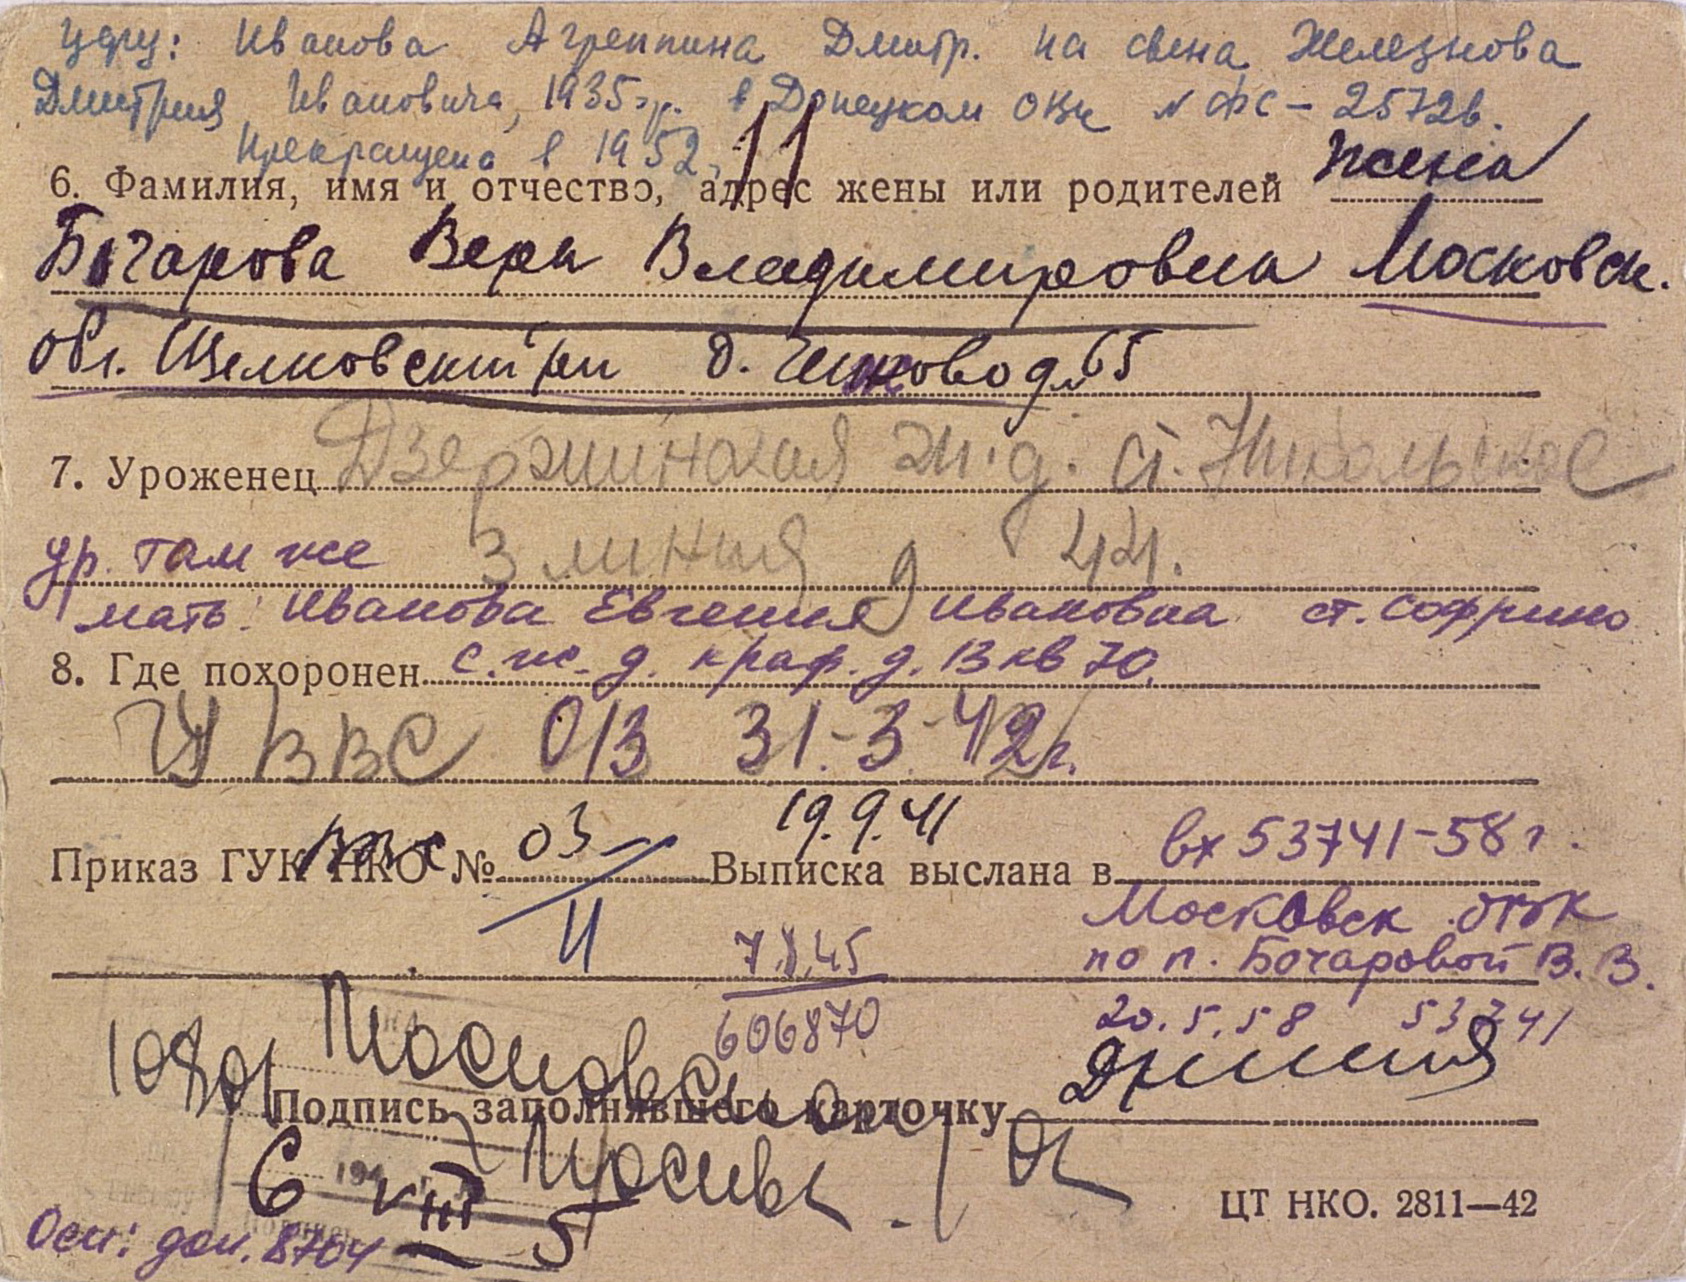 Иванова Агреппина Дмитр. на сына Железнова
Дмитрия Ивановича, 1935 г.р. в Донецком ОВК № ФС - 2572в.
Прекращено в 1952
6. Фамилия, имя и отчество, адрес жены или родителей жена
Бочарова Вера Владимировна Московск.
обл. Щелковский р-н д. д 65
7. Уроженец Дзержинская ж.д. ст. Никольское
ур. там же 3 линия д 44.
мать: Иванова Евгения Ивановна ст. Софрино
8. Где похоронен с. ж. д. д. 13 кв 70.
ГУ ВВС 013 31-3-42г.
Приказ ГУК НКО ВВС № 03 Выписка выслана в вх 53741-58 г.
19.9.41
11
Московск
7.X.45 по п. Бочаровой В. В.
606870 20.5.58 53741
Московск
Подпись заполнявшего карточку
6 VIII 5 Москвы
ЦТ НКО. 2811—42
Осн: доп. 8704